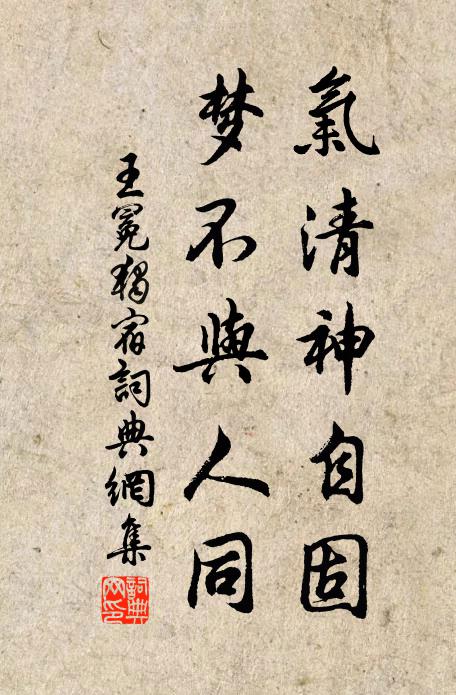 氣清神自固
梦不與人同
王冕獨宿詞典網集
詞典网印